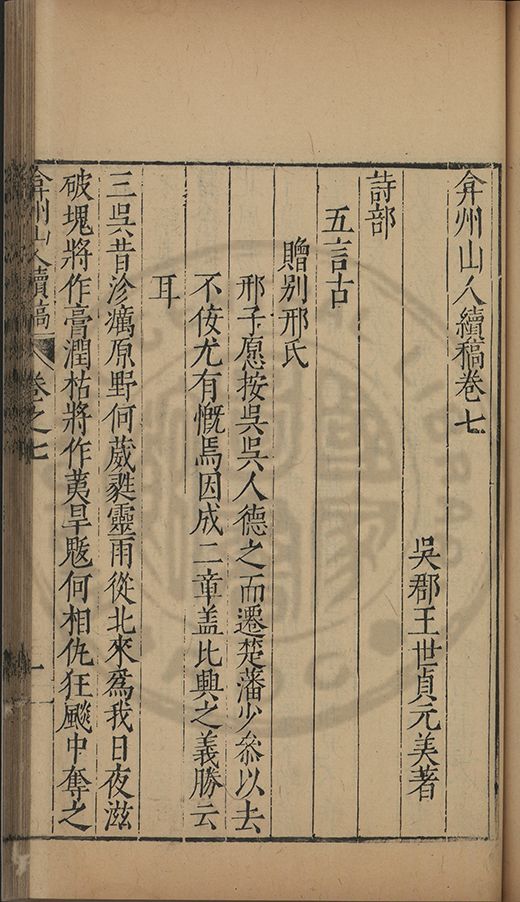 弇州山人續稿卷七
吳郡王世貞元美著
詩部
五言古
贈別邢氏
邢子愿按吳吳人德之而遷楚藩少叅以去
不佞尤有慨焉因成二章盖比興之義勝云
耳
三吳昔沴癘原野何葳蕤靈雨從北來爲我日夜滋
破塊將作膏潤枯將作荑旱魃何相仇狂飈中奪之
弇州山人續稿 卷之七 一